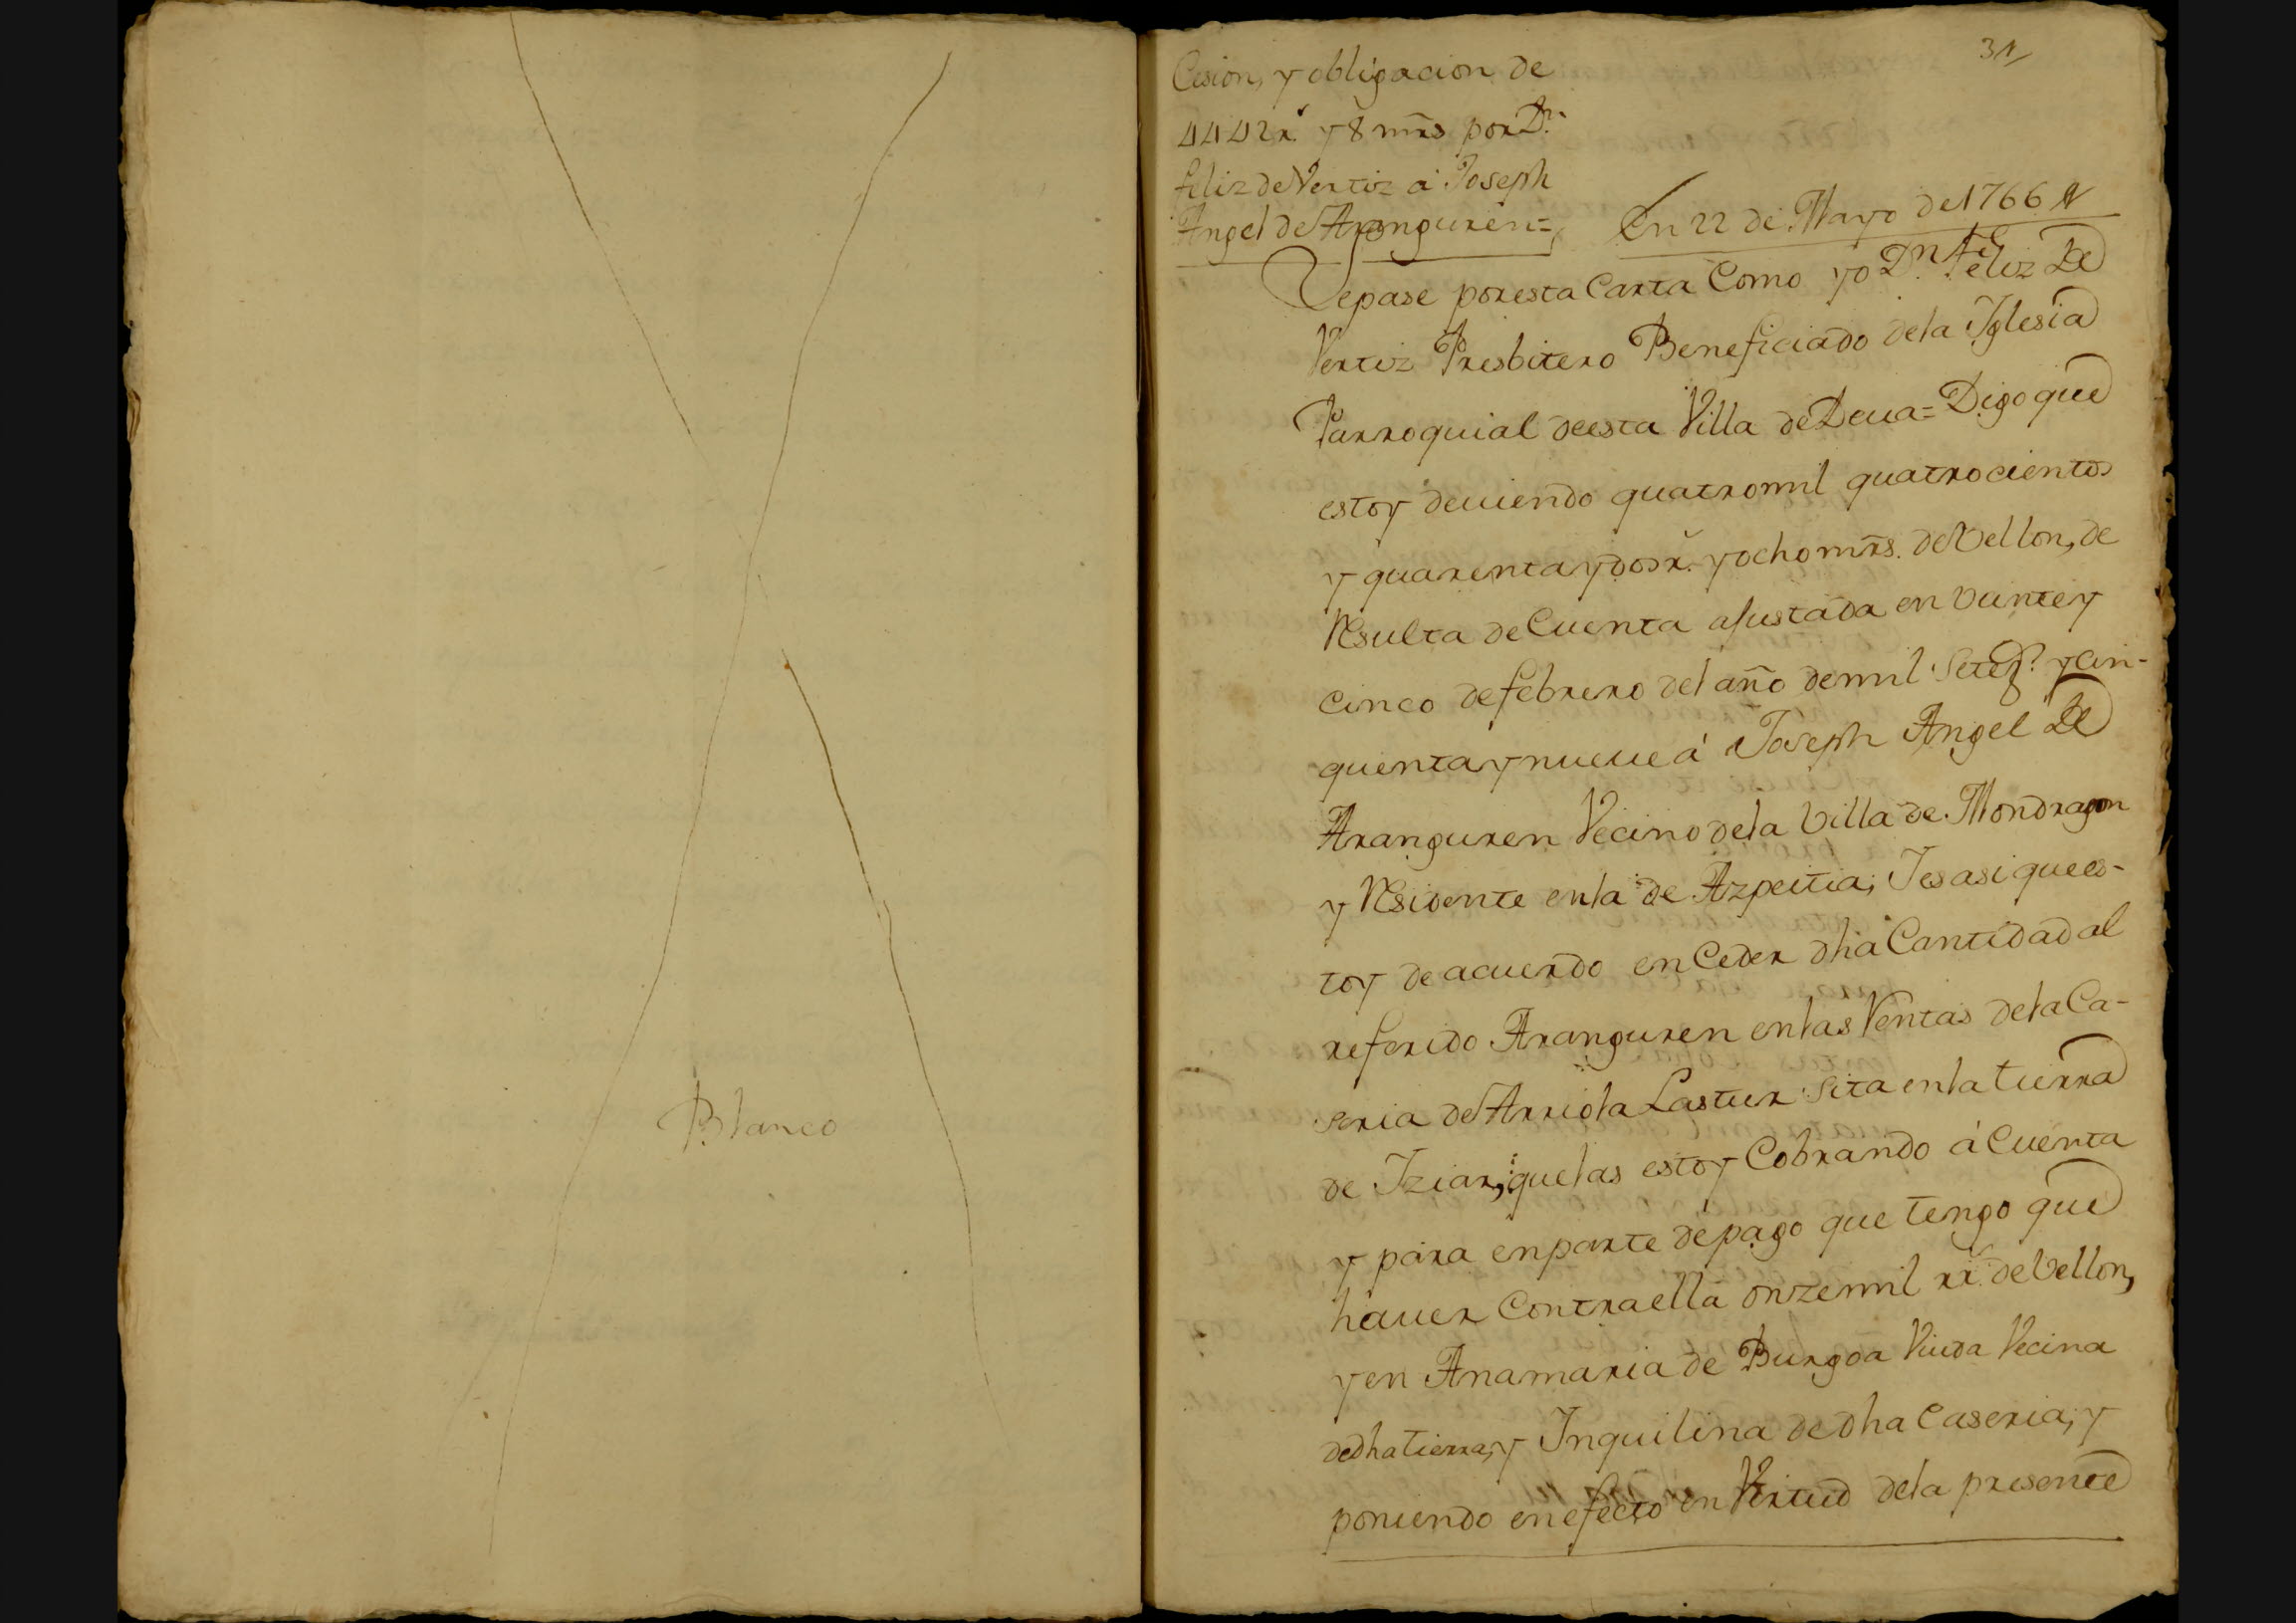 Blanco
31
Cesion, y obligacion de
4442 r.^s y 8 mrs por D.^n
feliz de Vertiz a Joseph
Angel de Aranguren=
En 22 de Mayo de 1766
Sepase por esta Carta Como yo D.^n Feliz De
Vertiz Presbitero Beneficiado de la Yglesia
Parroquial de esta Villa de Deua= Digo que
estoy deuiendo quatro mil quatrocientos
y quarenta y dos r.^s y ocho mrs. de Vellon, de
Resulta de Cuenta ajustada en veinte y
cinco de febrero del año de mil Setez.^s y cin-
quenta y nueue á Joseph Angel De
Aranguren Vecino de la Villa de Mondragon
y Residente en la de Azpeitia; Y es asi que es-
toy de acuerdo en Ceder dha Cantidad al
referido Aranguren en las Rentas de la Ca-
seria de Arriola Lastur sita en la tierra
de Yziar, que las estoy Cobrando á Cuenta
y para en parte de pago que tengo que
hauer Contra ella onze mil rr.^s de Vellon,
y en Anamaria de Burgoa Viuda Vecina
de dha tierra, y Inquilina de dha Caseria; y
poniendo en efecto en Virtud de la presente